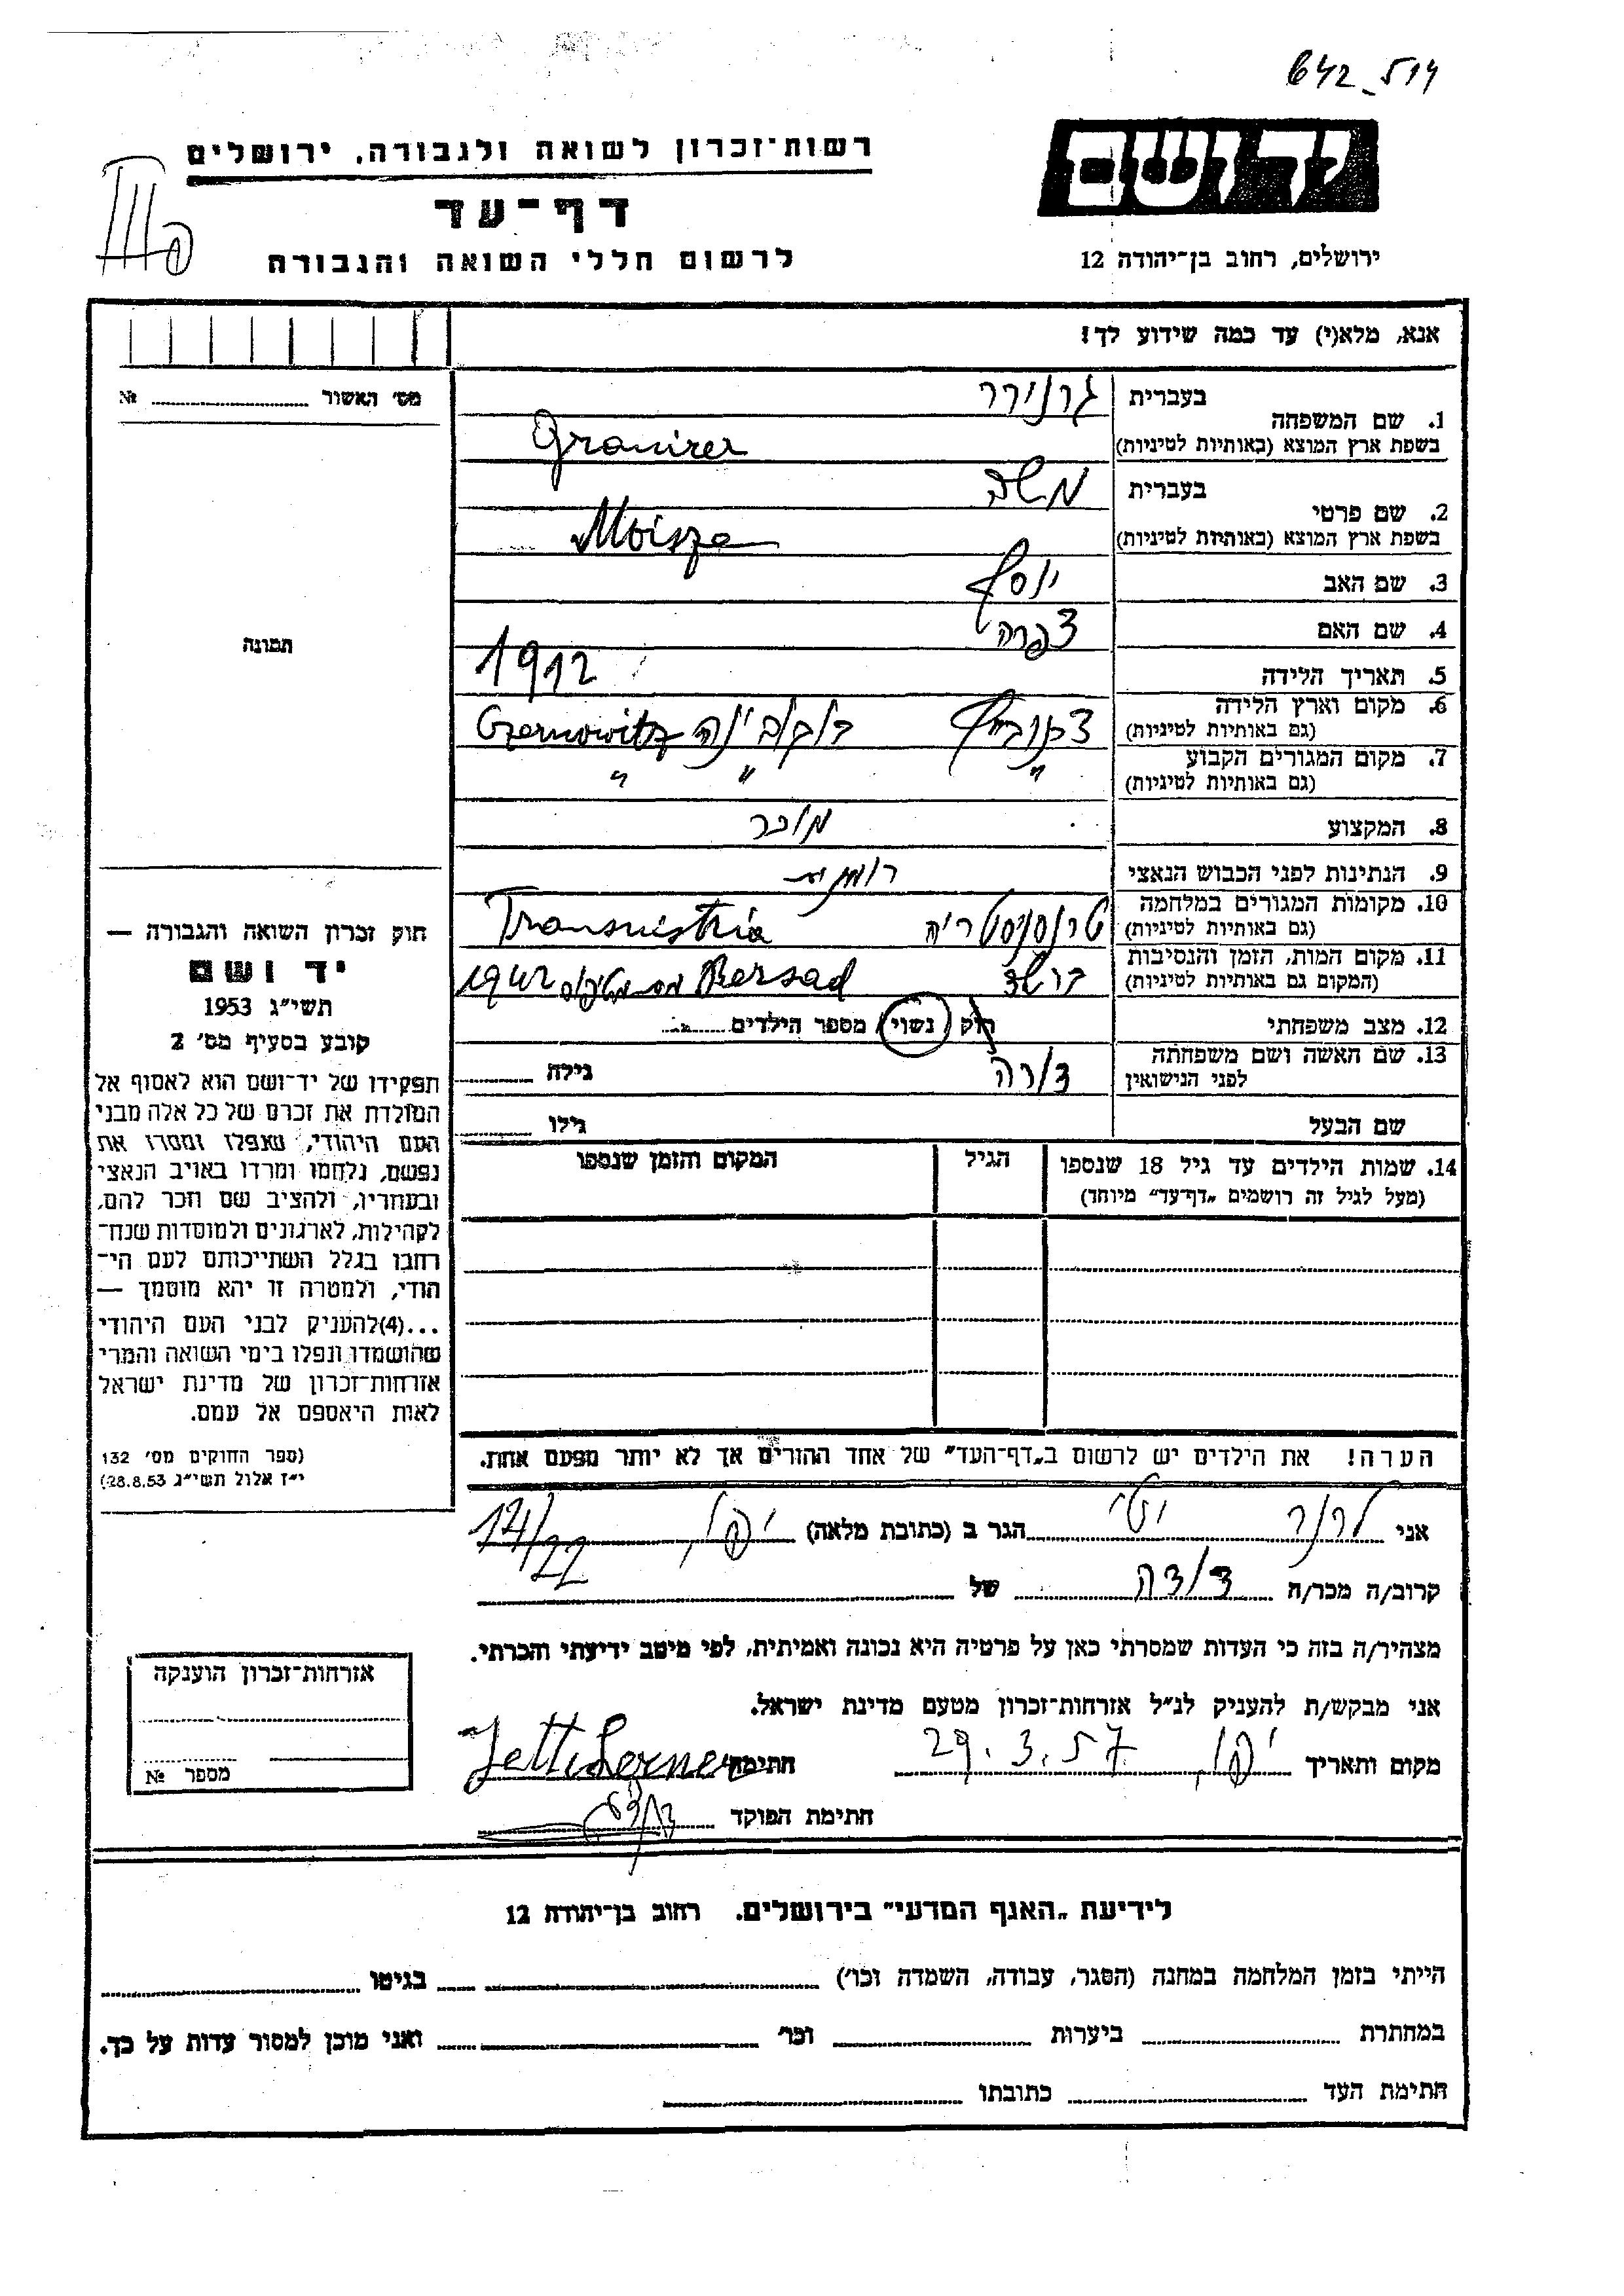 642_514
יד ושם
רשות־זכרון לשואה ולגבורה, ירושלים
דף־עד
ירושלים, רחוב בן־יהודה 12
לרשום חללי השואה והגבורה
אנא, מלא(י) עד כמה שידוע לך!
מס׳ האשור № 
בעברית גרנירר
1. שם המשפחה
בשפת ארץ המוצא (באותיות לטיניות) Granirer
בעברית משה
2. שם פרטי
בשפת ארץ המוצא (באותיות לטיניות) Moisze
3. שם האב יוסף
4. שם האם צפרה
תמונה
5. תאריך הלידה 1912
6. מקום וארץ הלידה
(גם באותיות לטיניות) בוקובינה Czernowitz
7. מקום המגורים הקבוע
(גם באותיות לטיניות) " " "
8. המקצוע מוכר
9. הנתינות לפני הכבוש הנאצי רומנית
10. מקומות המגורים במלחמה
(גם באותיות לטיניות) טרנסניסטריה Transnistria
11. מקום המות, הזמן והנסיבות
(המקום גם באותיות לטיניות) ברשד Bersad 1942
12. מצב משפחתי רוק / נשוי / מספר הילדים
13. שם האשה ושם משפחתה
לפני הנישואין גילה
שם הבעל גילו
14. שמות הילדים עד גיל 18 שנספו הגיל המקום והזמן שנספו
(מעל לגיל זה רושמים „דף־עד״ מיוחד)
הערה! את הילדים יש לרשום ב„דף־העד״ של אחד ההורים אך לא יותר מפעם אחת.
חוק זכרון השואה והגבורה —
יד ושם
תשי״ג 1953
קובע בסעיף מס׳ 2
תפקידו של יד־ושם הוא לאסוף אל
המולדת את זכרם של כל אלה מבני
העם היהודי, שנפלו ומסרו את
נפשם, נלחמו ומרדו באויב הנאצי
ובעוזריו, ולהציב שם וזכר להם,
לקהילות, לארגונים ולמוסדות שנח־
רבו בגלל השתייכותם לעם הי־
הודי, ולמטרה זו יהא מוסמך —
...(4)להעניק לבני העם היהודי
שהושמדו ונפלו בימי השואה והמרי
אזרחות־זכרון של מדינת ישראל
לאות היאספם אל עמם.
(ספר החוקים מס׳ 132
י״ז אלול תשי״ג 28.8.53)
אני לרנר יטי הגר ב (כתובת מלאה) 14/22
קרוב/ה מכר/ה דודה של
מצהיר/ה בזה כי העדות שמסרתי כאן על פרטיה היא נכונה ואמיתית, לפי מיטב ידיעתי והכרתי.
אני מבקש/ת להעניק לנ״ל אזרחות־זכרון מטעם מדינת ישראל.
מקום ותאריך 29.3.57 חתימה Jetti Lerner
חתימת הפוקד
אזרחות־זכרון הוענקה
מספר №
לידיעת „האגף המדעי״ בירושלים. רחוב בן־יהודה 12
הייתי בזמן המלחמה במחנה (הסגר, עבודה, השמדה וכו׳) בגיטו
במחתרת ביערות וכו׳ ואני מוכן למסור עדות על כך.
חתימת העד כתובתו